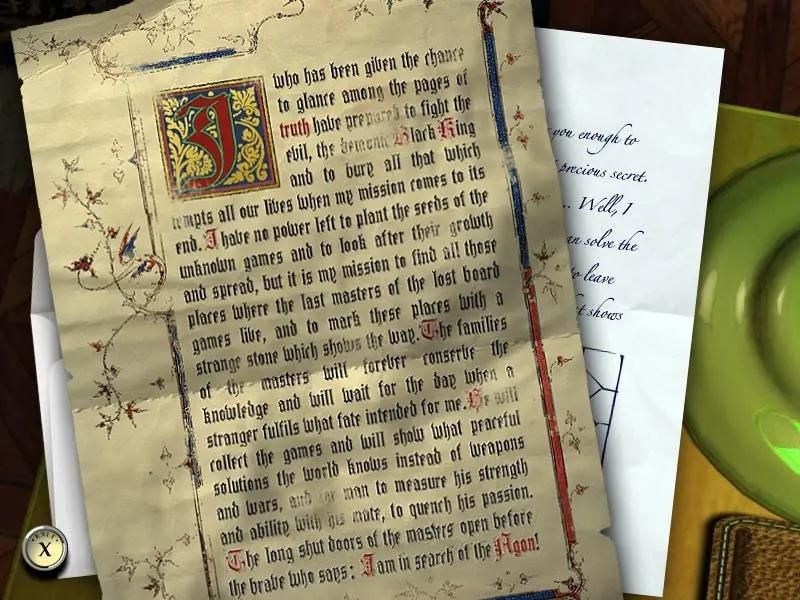 I who has been given the chance
to glance among the pages of
truth have prepared to fight the
evil, the demonic Black King
and to bury all that which
tempts all our lives when my mission comes to its
end. I have no power left to plant the seeds of the
unknown games and to look after their growth
and spread, but it is my mission to find all those
places where the last masters of the lost board
games live, and to mark these places with a
strange stone which shows the way. The families
of the masters will forever conserve the
knowledge and will wait for the day when a
stranger fulfils what fate intended for me. He will
collect the games and will show what peaceful
solutions the world knows instead of weapons
and wars, and the man to measure his strength
and ability with his mate, to quench his passion.
The long shut doors of the masters open before
the brave who says: I am in search of the Agon!
you enough to
precious secret.
... Well, I
can solve the
to leave
shows
EXIT
X